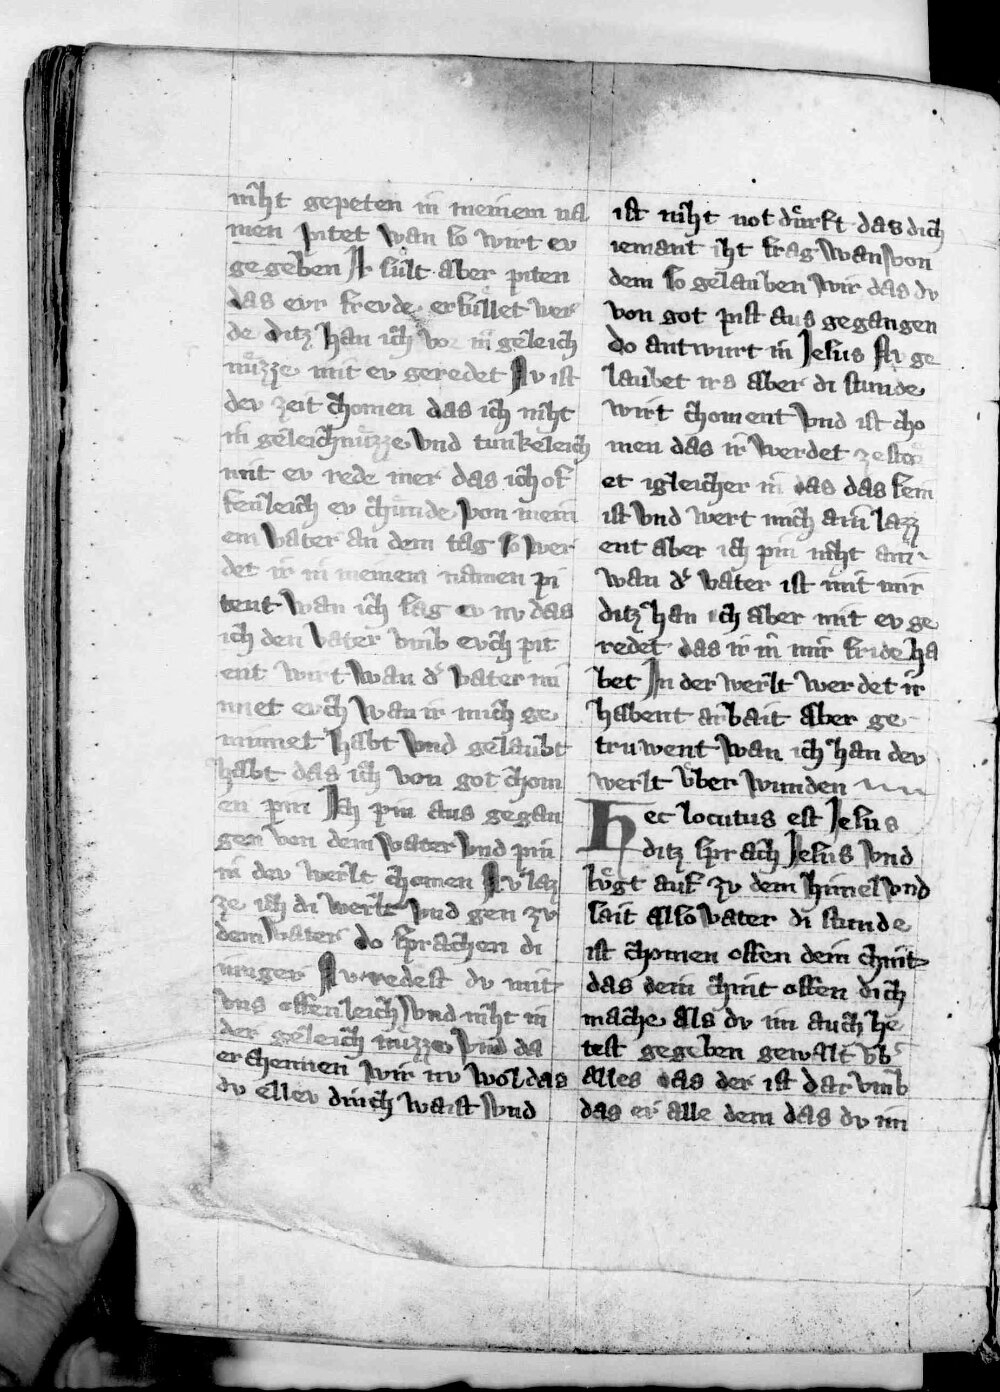 niht gepeten in meinem na
men pitet wan so wirt ev
gegeben Ir sult aber piten
das evr frevde erfullet wer
de ditz han ich vor in geleich
nuzze mit ev geredet Nv ist
dev zeit chomen das ich niht
in geleichnuzze vnd tunkeleich
mit ev rede mer das ich of
fenleich ev chunde von mein
em vater an dem tag so wer
det ir in meinem namen pi
tent wan ich sag ev nv das
ich den vater vmb evch pit
ent wirt wan d' vater mi
nnet evch wan ir mich ge
minnet habt vnd gelaubt
habt das ich von got chom
en pin Ich pin aus gegan
gen von dem vater vnd pin
in dev werlt chomen Nv laz
ze ich di werlt vnd gen zv
dem vater do sprachen di
iunger Nv redest dv mit
vns offenleich vnd niht in
der geleich nuzze vnd da
erchennen wir nv wol das
dv ellev dinch waist vnd
ist niht not durft das dich
iemant iht frag wan von
dem so gelauben wir das dv
von got pist aus gegangen
do antwurt in Jesus Nv ge
laubet irs aber di stunde
wirt choment vnd ist cho
men das ir werdet zestro
et igleicher in das das sein
ist vnd wert mich ain lazz
ent aber ich pin niht ain
wan d' vater ist mit mir
ditz han ich aber mit ev ge
redet das ir in mir fride ha
bet In der werlt werdet ir
habent arbait aber ge
truwent wan ich han dev
werlt vber wunden
Hec locutus est Jesus
ditz sprach Jesus vnd
hugt auf zv dem himel vnd
sait also vater di stunde
ist chomen offen dein chint
das dein chint offen dich
mache als dv im auch he
test gegeben gewalt vb'
alles das der ist dar vmb
das er alle dem das dv im